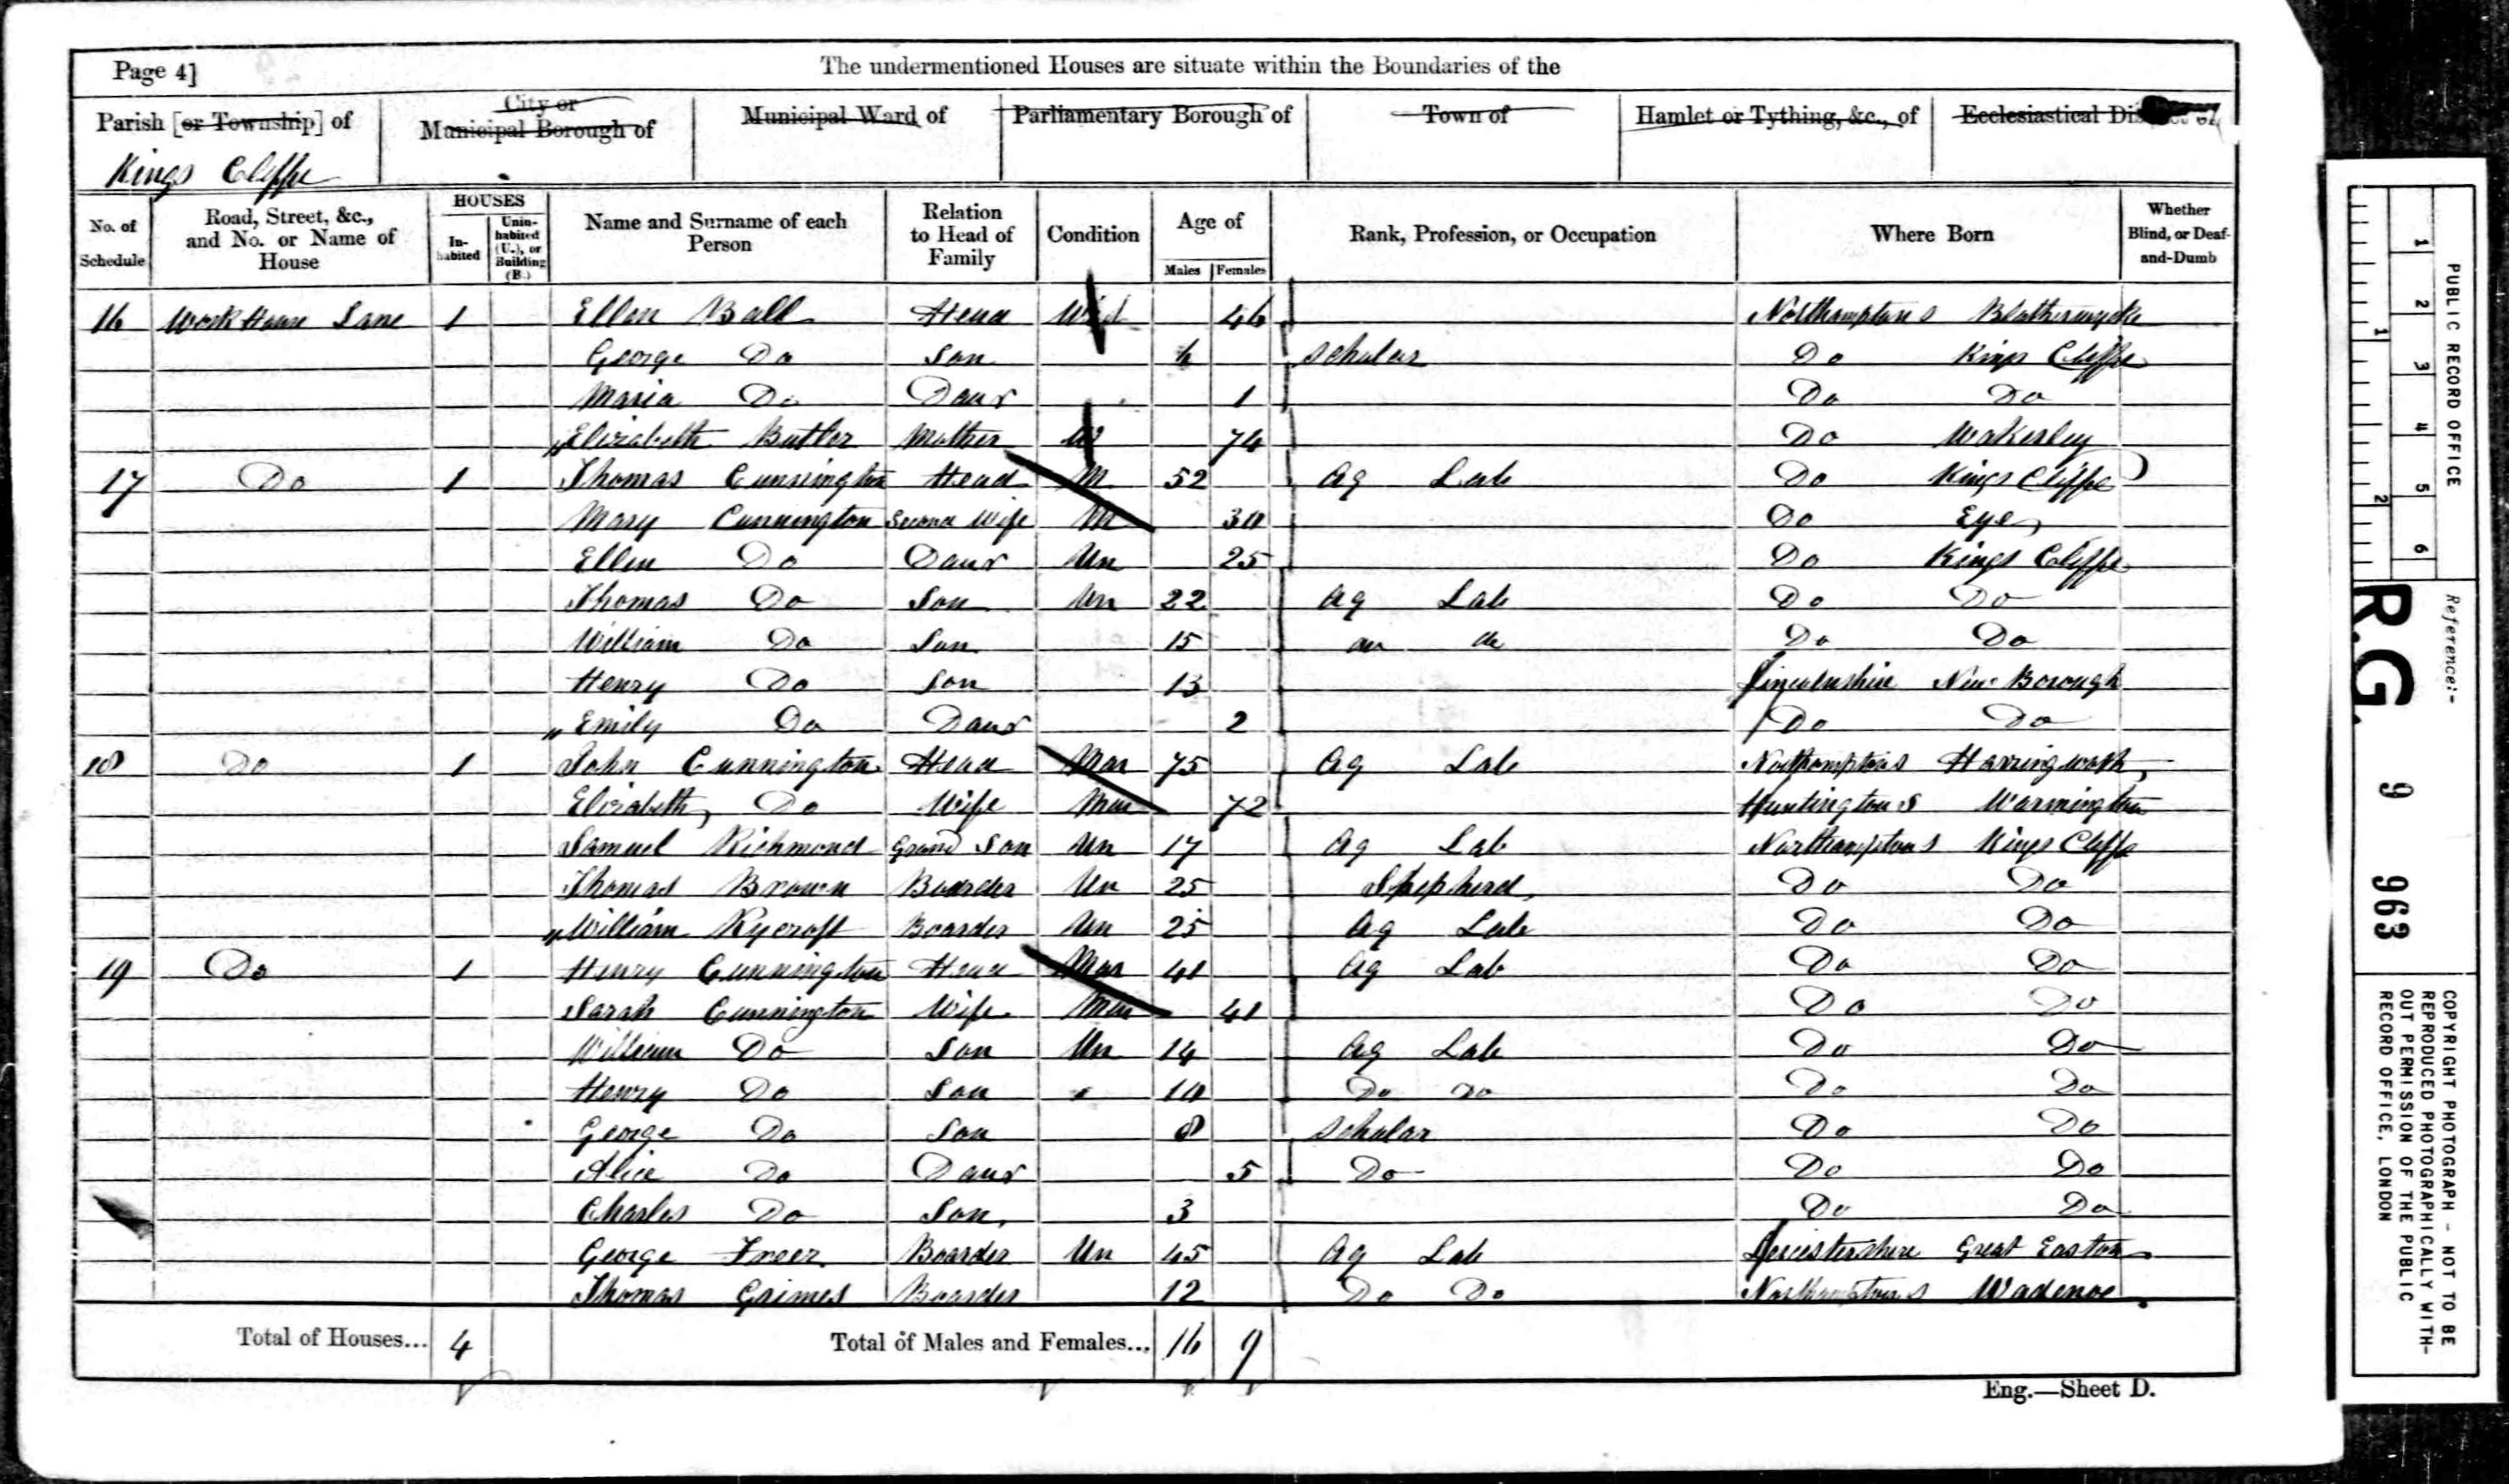 Page 4]
The undermentioned Houses are situate within the Boundaries of the
Parish [or Township] of
City or Municipal Borough of
Municipal Ward of
Parliamentary Borough of
Town of
Hamlet or Tything, &c., of
Ecclesiastical
Kings Cliffe
No. of Schedule
Road, Street, &c., and No. or Name of House
HOUSES
In-habited
Unin-habited (U.), or Building (B.)
Name and Surname of each Person
Relation to Head of Family
Condition
Age of
Males
Females
Rank, Profession, or Occupation
Where Born
Whether Blind, or Deaf-and-Dumb
16 Work House Lane 1 Ellen Ball Head Wid 46 Northamptons Blatherwycke
George Do Son 6 Scholar Do Kings Cliffe
Maria Do Daur 1 Do Do
Elizabeth Butler Mother W 74 Do Wakerley
17 Do 1 Thomas Cunnington Head M 52 Ag Lab Do Kings Cliffe
Mary Cunnington Second Wife M 30 Do Eye
Ellen Do Daur Un 25 Do Kings Cliffe
Thomas Do Son Un 22 Ag Lab Do Do
William Do Son 15 do do Do Do
Henry Do Son 13 Lincolnshire New Borough
Emily Do Daur 2 Do Do
18 Do 1 John Cunnington Head Mar 75 Ag Lab Northamptons Harringworth
Elizabeth Do Wife Mar 72 Huntingtons Warmington
Samuel Richmond Grand Son Un 17 Ag Lab Northamptons Kings Cliffe
Thomas Brown Boarder Un 25 Shepherd Do Do
William Rycroft Boarder Un 25 Ag Lab Do Do
19 Do 1 Henry Cunnington Head Mar 41 Ag Lab Do Do
Sarah Cunnington Wife Mar 41 Do Do
William Do Son Un 14 Ag Lab Do Do
Henry Do Son 10 Do Do Do Do
George Do Son 8 Scholar Do Do
Alice Do Daur 5 Do Do Do
Charles Do Son 3 Do Do
George Freer Boarder Un 45 Ag Lab Leicestershire Great Easton
Thomas Grimes Boarder 12 Do Do Northamptons Wadenoe
Total of Houses... 4 Total of Males and Females... 16 9
Eng.—Sheet D.
PUBLIC RECORD OFFICE
1 2 3 4 5 6
1 2
Reference:-
R.G. 9 963
COPYRIGHT PHOTOGRAPH - NOT TO BE
REPRODUCED PHOTOGRAPHICALLY WITH-
OUT PERMISSION OF THE PUBLIC
RECORD OFFICE, LONDON